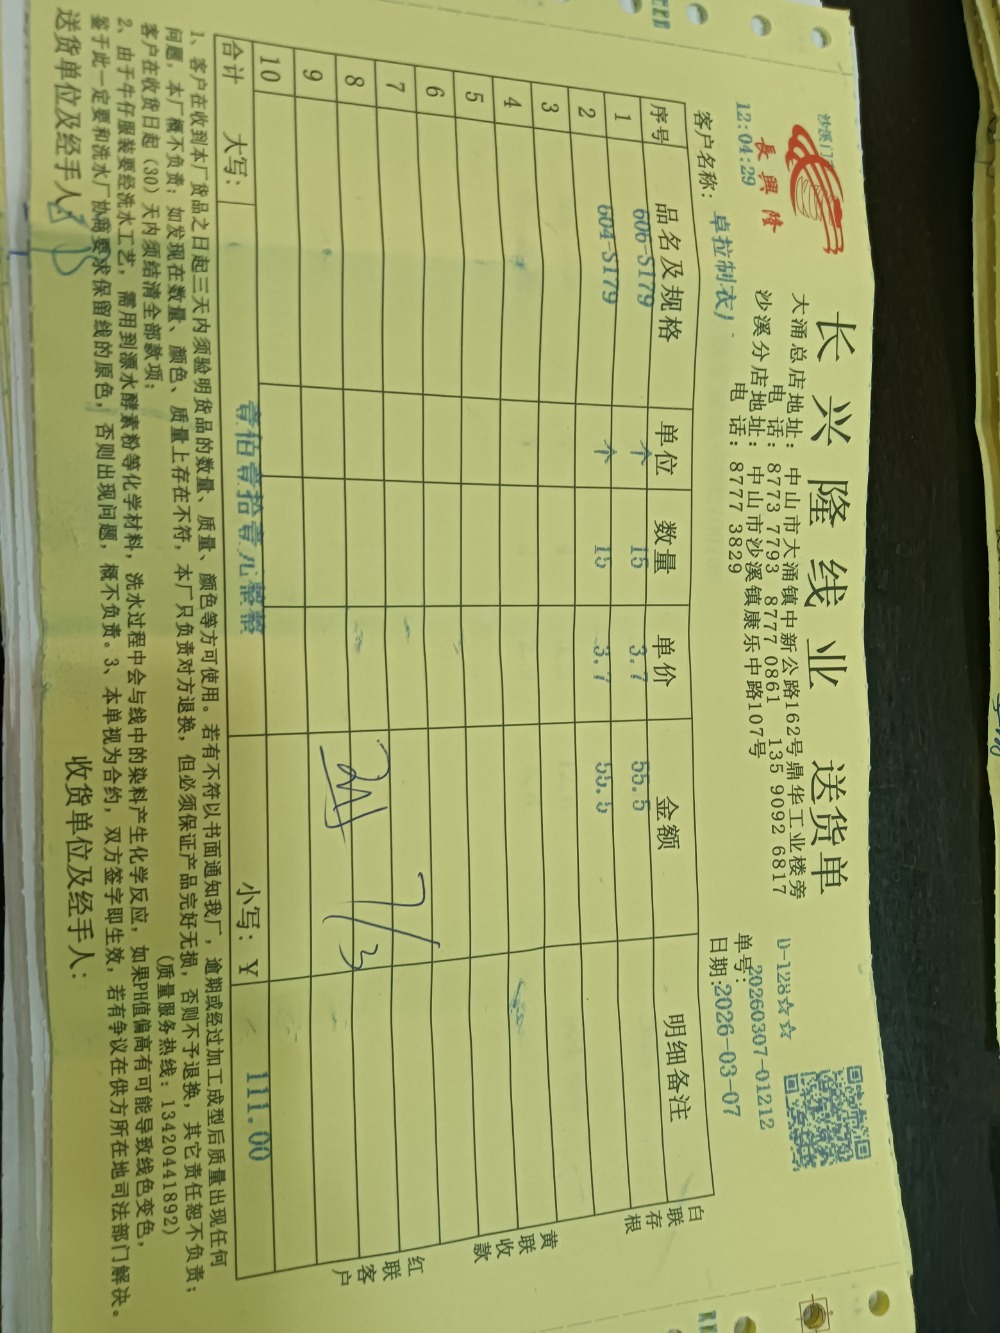 长兴隆线业 送货单
長興隆
沙溪门
12:04:29
大涌总店地址: 中山市大涌镇中新公路162号鼎华工业楼旁
电 话: 8773 7793 8777 0861 135 9092 6817
沙溪分店地址: 中山市沙溪镇康乐中路107号
电 话: 8777 3829
D-128☆☆
单号: 20260307-01212
日期: 2026-03-07
客户名称: 卓拉制衣厂
序号 品名及规格 单位 数量 单价 金额 明细备注
1 606-S179 个 15 3.7 55.5
2 604-S179 个 15 3.7 55.5
3
4
5
6
7
8
9
10
7/3
合计 大写: 壹佰壹拾壹元整整 小写: ¥ 111.00
白联存根
黄联收款
红联客户
1、客户在收到本厂货品之日起三天内须验明货品的数量、质量、颜色等方可使用。若有不符以书面通知我厂,逾期或经过加工成型后质量出现任何
问题,本厂概不负责;如发现在数量、颜色、质量上存在不符,本厂只负责对方退换,但必须保证产品完好无损,否则不予退换,其它责任恕不负责;
客户在收货日起(30)天内须结清全部款项; (质量服务热线:13420441892)
2、由于牛仔服装要经洗水工艺,需用到漂水酵素粉等化学材料,洗水过程中会与线中的染料产生化学反应,如果PH值偏高有可能导致线色变色,
鉴于此一定要和洗水厂协商要求保留线的原色,否则出现问题,概不负责。3、本单视为合约,双方签字即生效,若有争议在供方所在地司法部门解决。
送货单位及经手人: 收货单位及经手人: